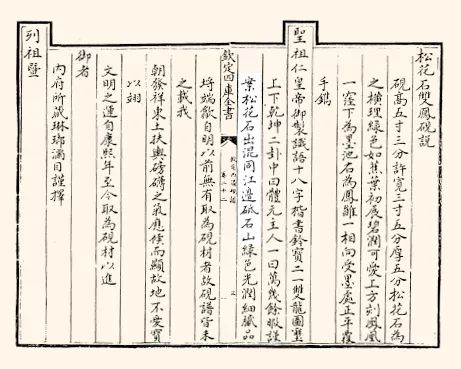 松花石雙鳳硯說
硯高五寸三分許寬三寸五分厚五分松花石為
之橫理綠色如蕉葉初展碧潤可愛上方刻鳳凰
一窪下為墨池右為鳳雛一相向受墨處正平覆
手鐫
聖祖仁皇帝御製識語十八字楷書鈐寶二一雙龍圓璽
上下乾坤二卦中曰體元主人一曰萬幾餘暇謹
案松花石出混同江邊砥石山綠色光潤細纎品
欽定四庫全書
埒端歙自明以前無有取為硯材者故硯譜皆未
之載我
朝發祥東土扶輿磅礴之氣應候而顯故地不愛寶
以翊
文明之運自康熙年至今取為硯材以進
御者
內府所藏琳瑯滿目謹擇
列祖暨